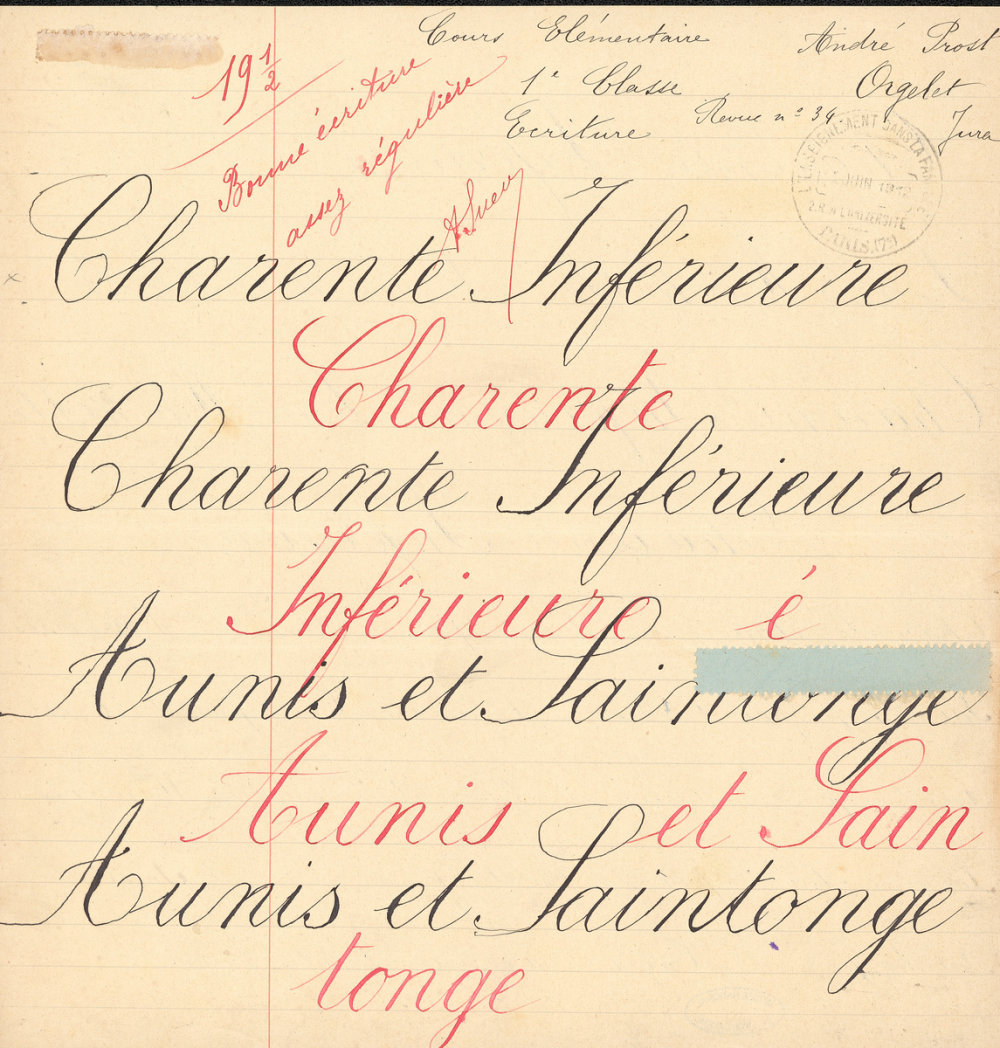 Cours Elémentaire
André Prost
1e Classe
Orgelet
Ecriture
Revue n° 34
Jura
19 1/2
Bonne écriture
assez régulière
L'ENSEIGNEMENT DANS LA
JUIN
2.R. DE L'UNIVERSITÉ
PARIS.(7e)
Charente Inférieure
Charente
Charente Inférieure
Inférieure é
Aunis et Saintonge
Aunis et Sain
Aunis et Saintonge
tonge